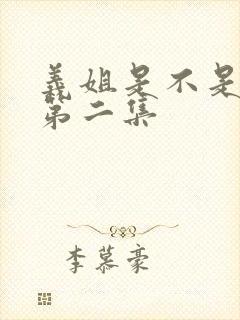 義姐是不是
第二集
李慕豪